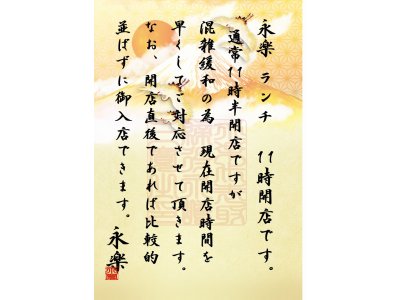 永楽 ランチ 11時開店です。
通常11時半開店ですが
混雑緩和の為 現在開店時間を
早くしてご対応させて頂きます。
なお、開店直後であれば比較的
並ばずに御入店できます。
永楽